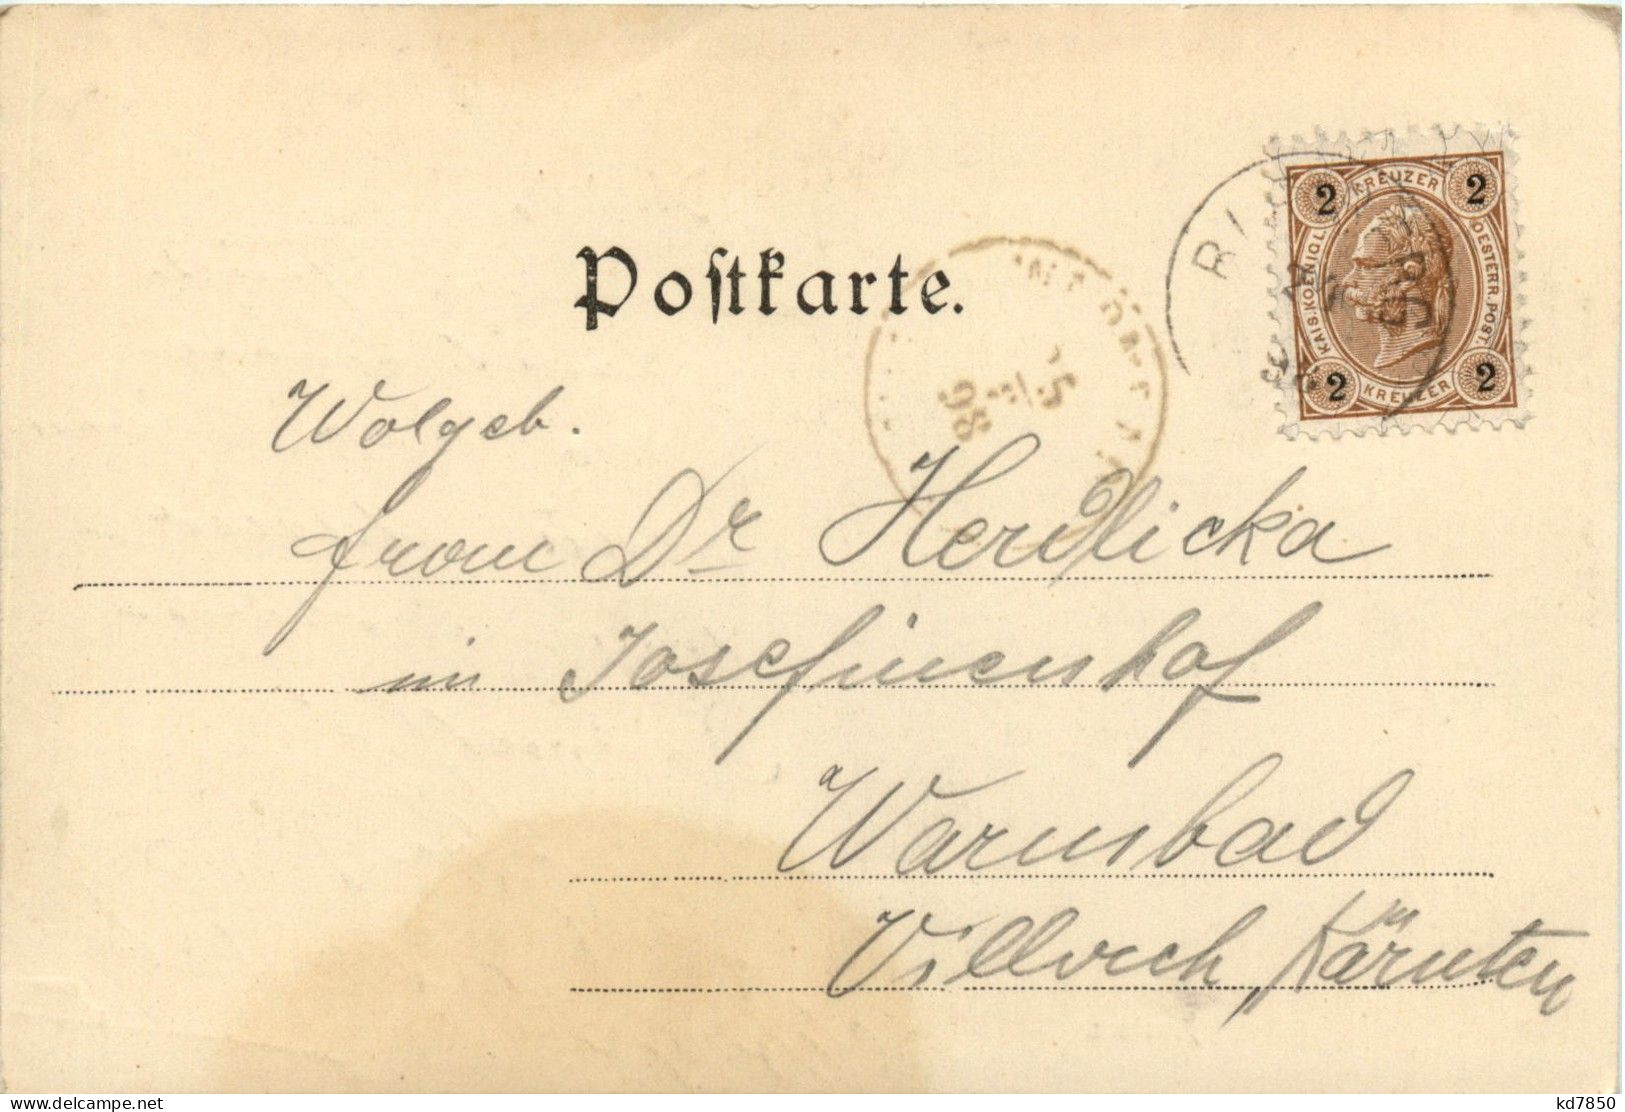 Postkarte.
2 KREUZER 2
KAIS. KOENIGL. OESTERR. POST.
2 KREUZER 2
RI
5
98
Wolgeb.
from Dr Herdlicka
im Josefinenhof
Warmbad
Villach, Kärnten
www.delcampe.net
kd7850